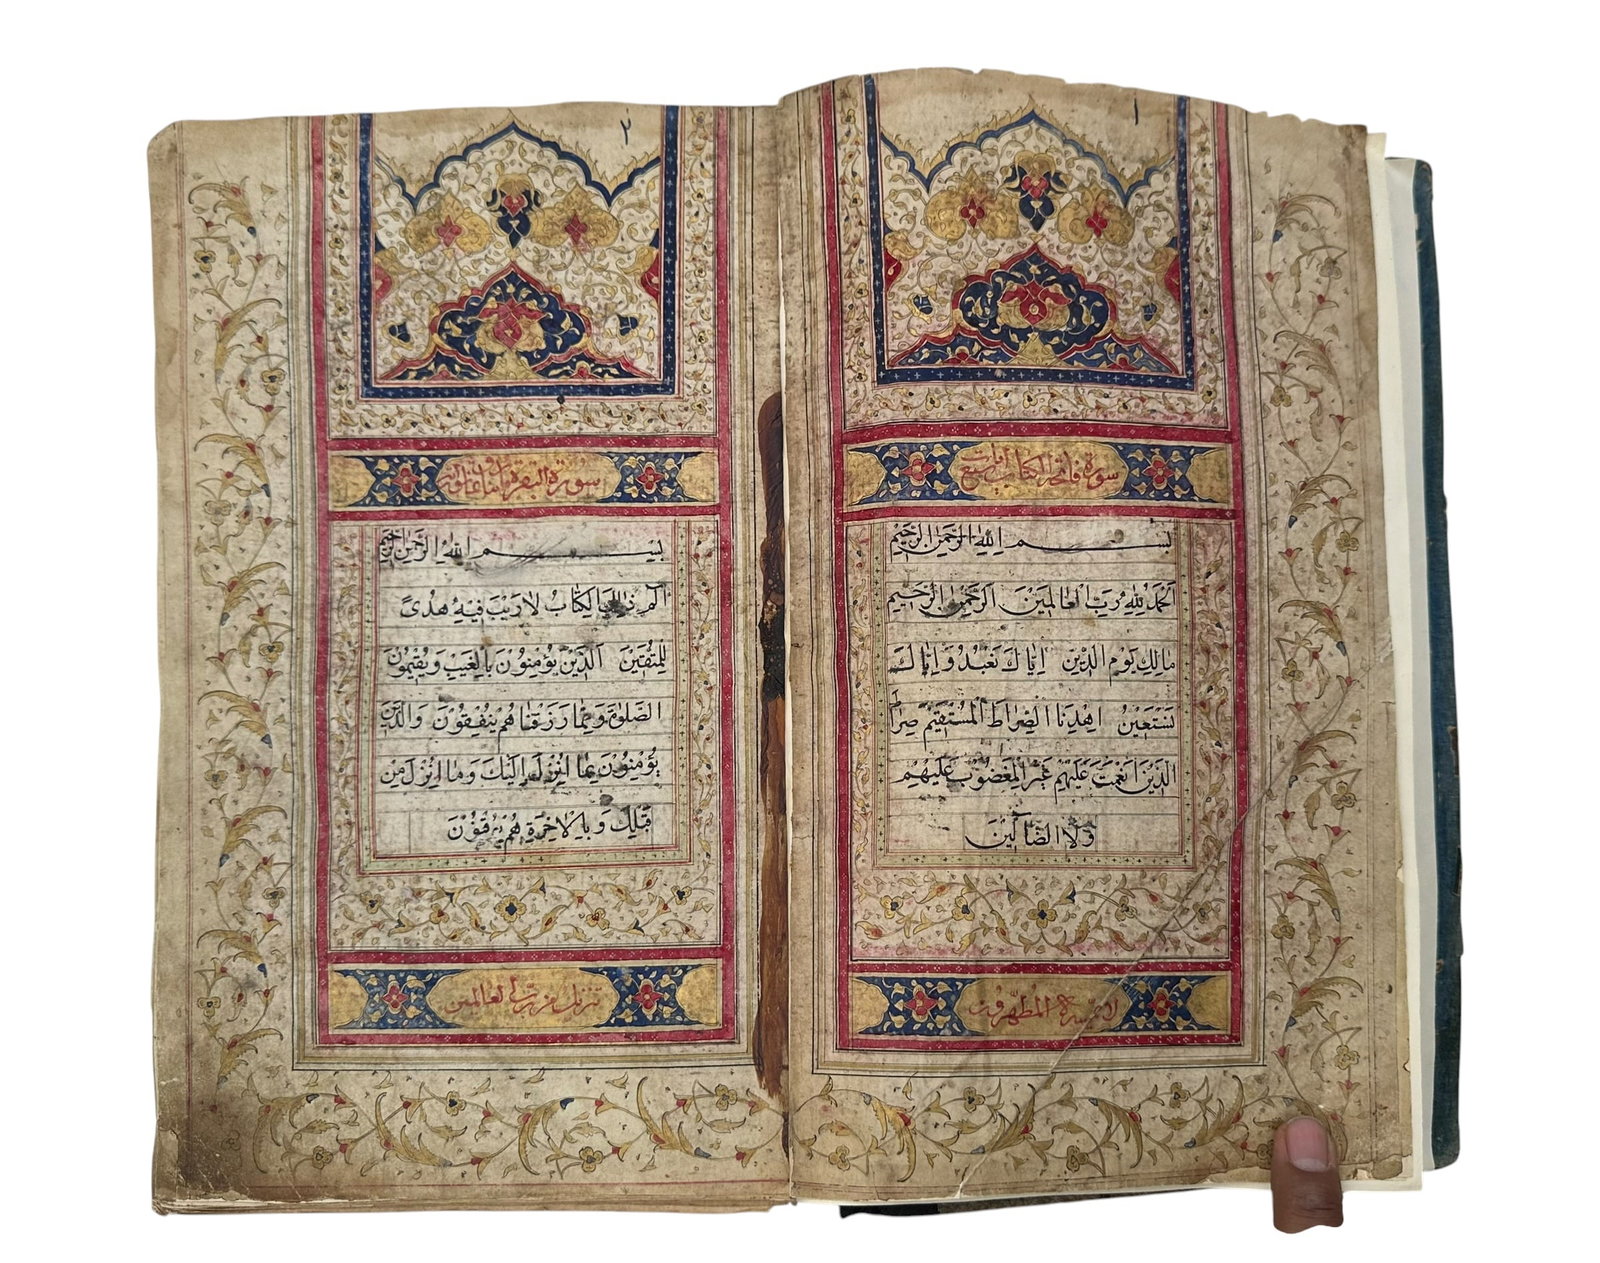 ١
سورة فاتحة الكتاب ايات سبع
بِسْمِ اللهِ الرَّحْمٰنِ الرَّحِيْمِ
اَلْحَمْدُ لِلّٰهِ رَبِّ الْعَالَمِيْنَ اَلرَّحْمٰنِ الرَّحِيْمِ
مَالِكِ يَوْمِ الدِّيْنِ اِيَّاكَ نَعْبُدُ وَ اِيَّاكَ
نَسْتَعِيْنُ اِهْدِنَا الصِّرَاطَ الْمُسْتَقِيْمَ صِرَاطَ
الَّذِيْنَ اَنْعَمْتَ عَلَيْهِمْ غَيْرِ الْمَغْضُوْبِ عَلَيْهِمْ
وَلَا الضَّآلِّيْنَ
لا يمسه الا المطهرون
٢
سورة البقرة
بِسْمِ اللهِ الرَّحْمٰنِ الرَّحِيْمِ
الٓمٓ ذٰلِكَ الْكِتَابُ لَا رَيْبَ فِيْهِ هُدًى
لِلْمُتَّقِيْنَ اَلَّذِيْنَ يُؤْمِنُوْنَ بِالْغَيْبِ وَيُقِيْمُوْنَ
الصَّلٰوةَ وَمِمَّا رَزَقْنَاهُمْ يُنْفِقُوْنَ وَالَّذِيْنَ
يُؤْمِنُوْنَ بِمَا اُنْزِلَ اِلَيْكَ وَمَا اُنْزِلَ مِنْ
قَبْلِكَ وَبِالْاٰخِرَةِ هُمْ يُوْقِنُوْنَ
تنزيل من رب العالمين